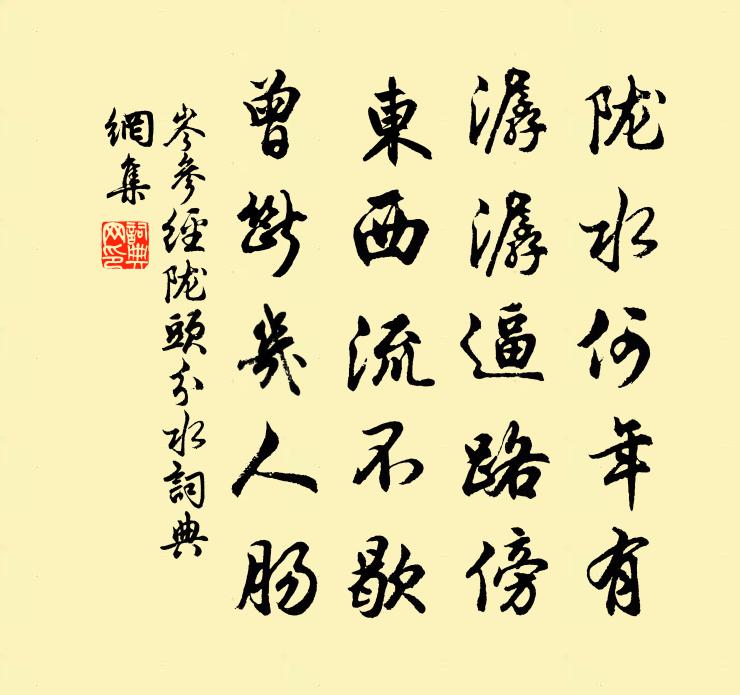 陇水何年有
潺潺逼路傍
東西流不歇
曾斷幾人肠
岑參經陇頭分水詞典
網集
詞典
网印